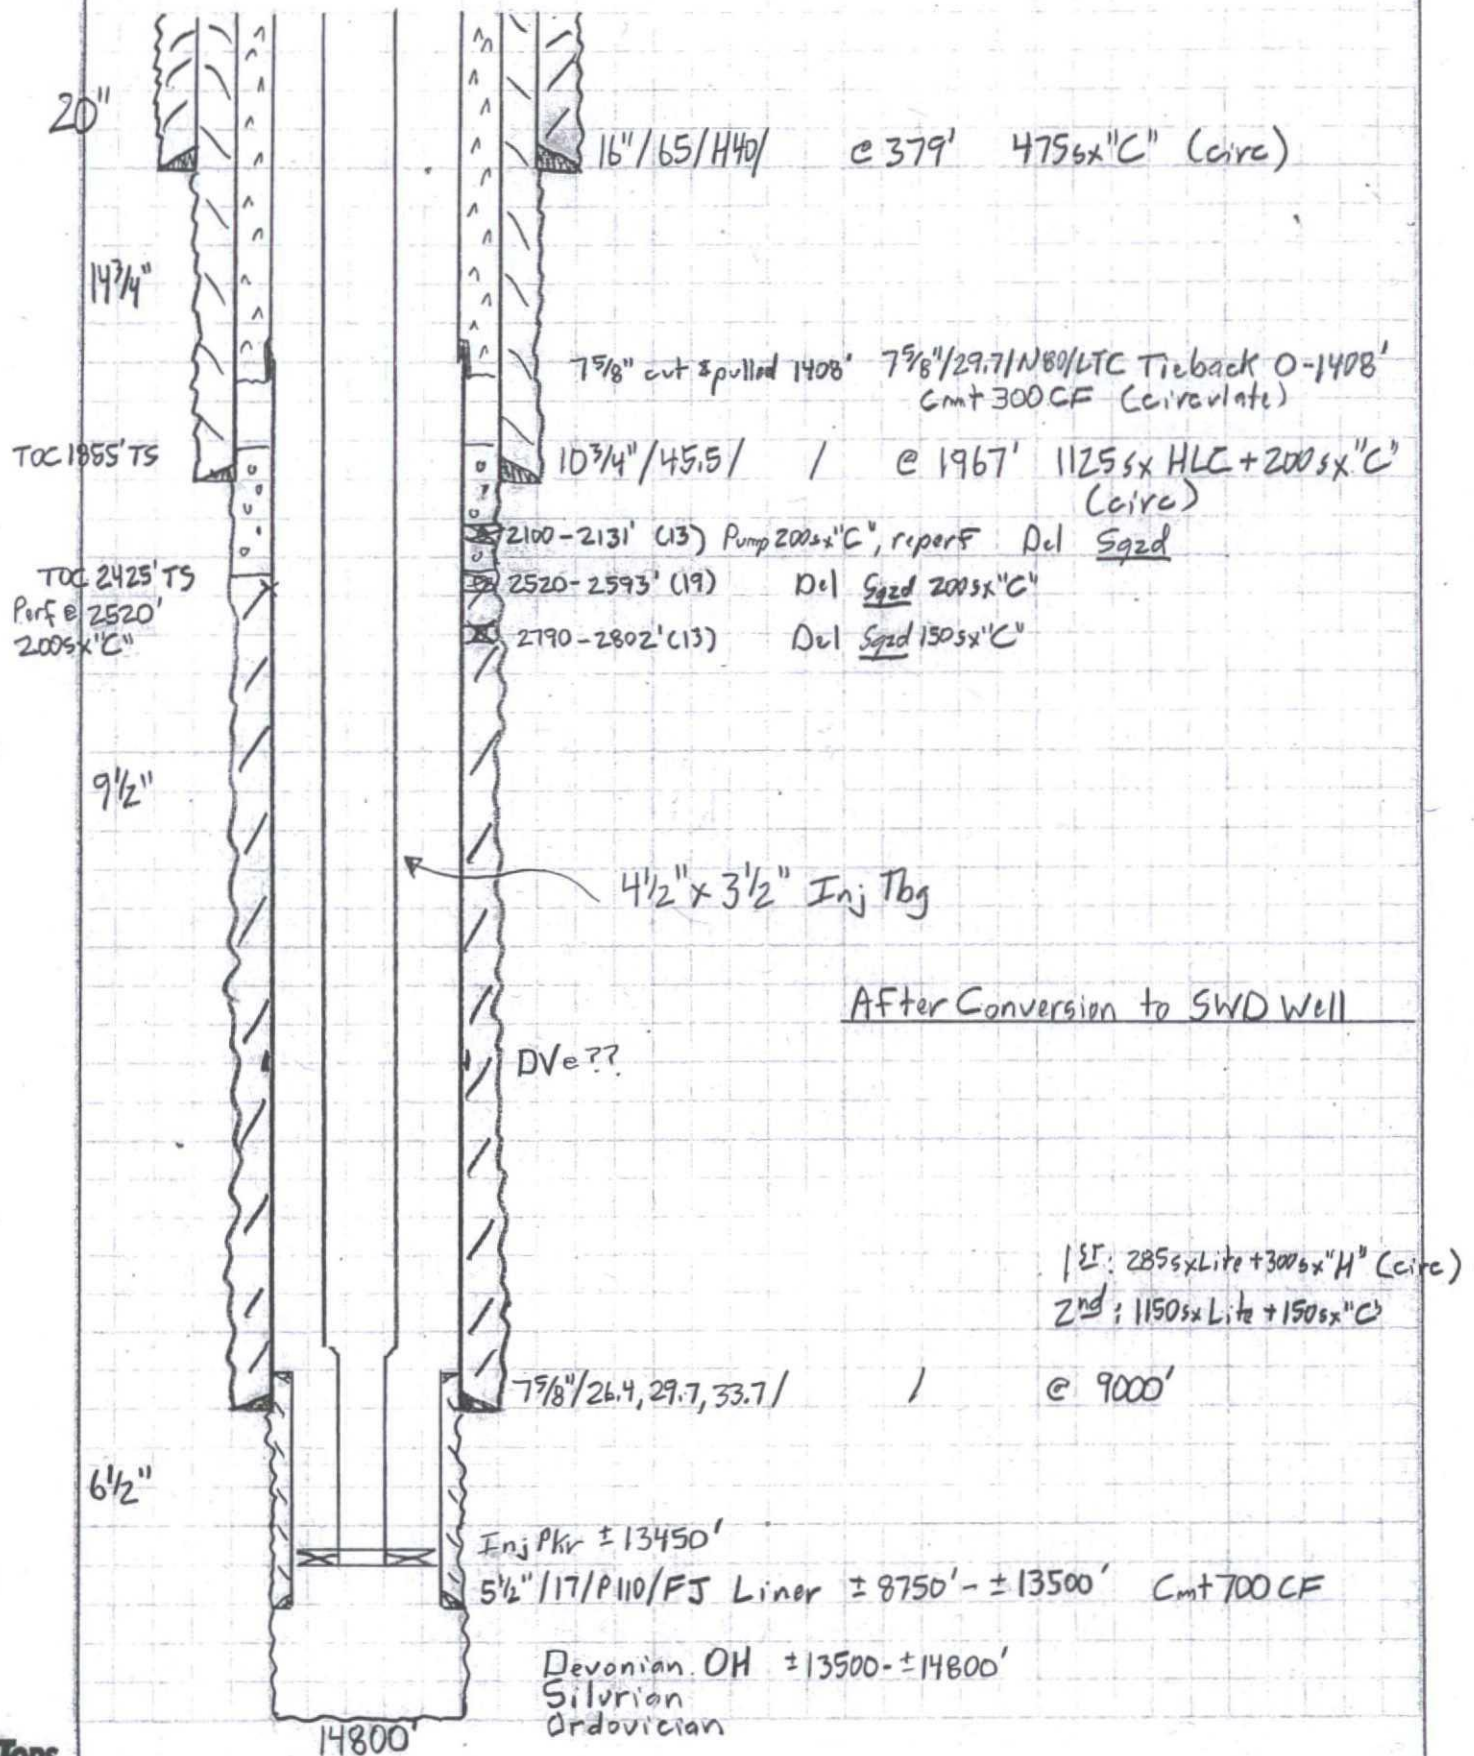 20"
16"/65/H40/ @ 379' 475sx"C" (circ)
14 3/4"
7 5/8" cut & pulled 1408' 7 5/8"/29.7/N80/LTC Tieback 0-1408'
Cmt 300 CF (circulate)
TOC 1855' TS
10 3/4"/45.5/ / @ 1967' 1125sx HLC + 200sx"C"
(circ)
2100-2131' (13) Pump 200sx"C", reperf Del Sqzd
TOC 2425' TS
2520-2593' (19) Del Sqzd 200sx"C"
Perf @ 2520'
200sx"C"
2790-2802' (13) Del Sqzd 150sx"C"
9 1/2"
4 1/2" x 3 1/2" Inj Tbg
After Conversion to SWD Well
DV@??
1st: 285sxLite+300sx"H" (circ)
2nd: 1150sx Lite +150sx"C"
7 5/8"/26.4, 29.7, 33.7/ / @ 9000'
6 1/2"
Inj Pkr ± 13450'
5 1/2"/17/P110/FJ Liner ± 8750' - ± 13500' Cmt 700 CF
Devonian OH ±13500-±14800'
Silurian
Ordovician
14800'